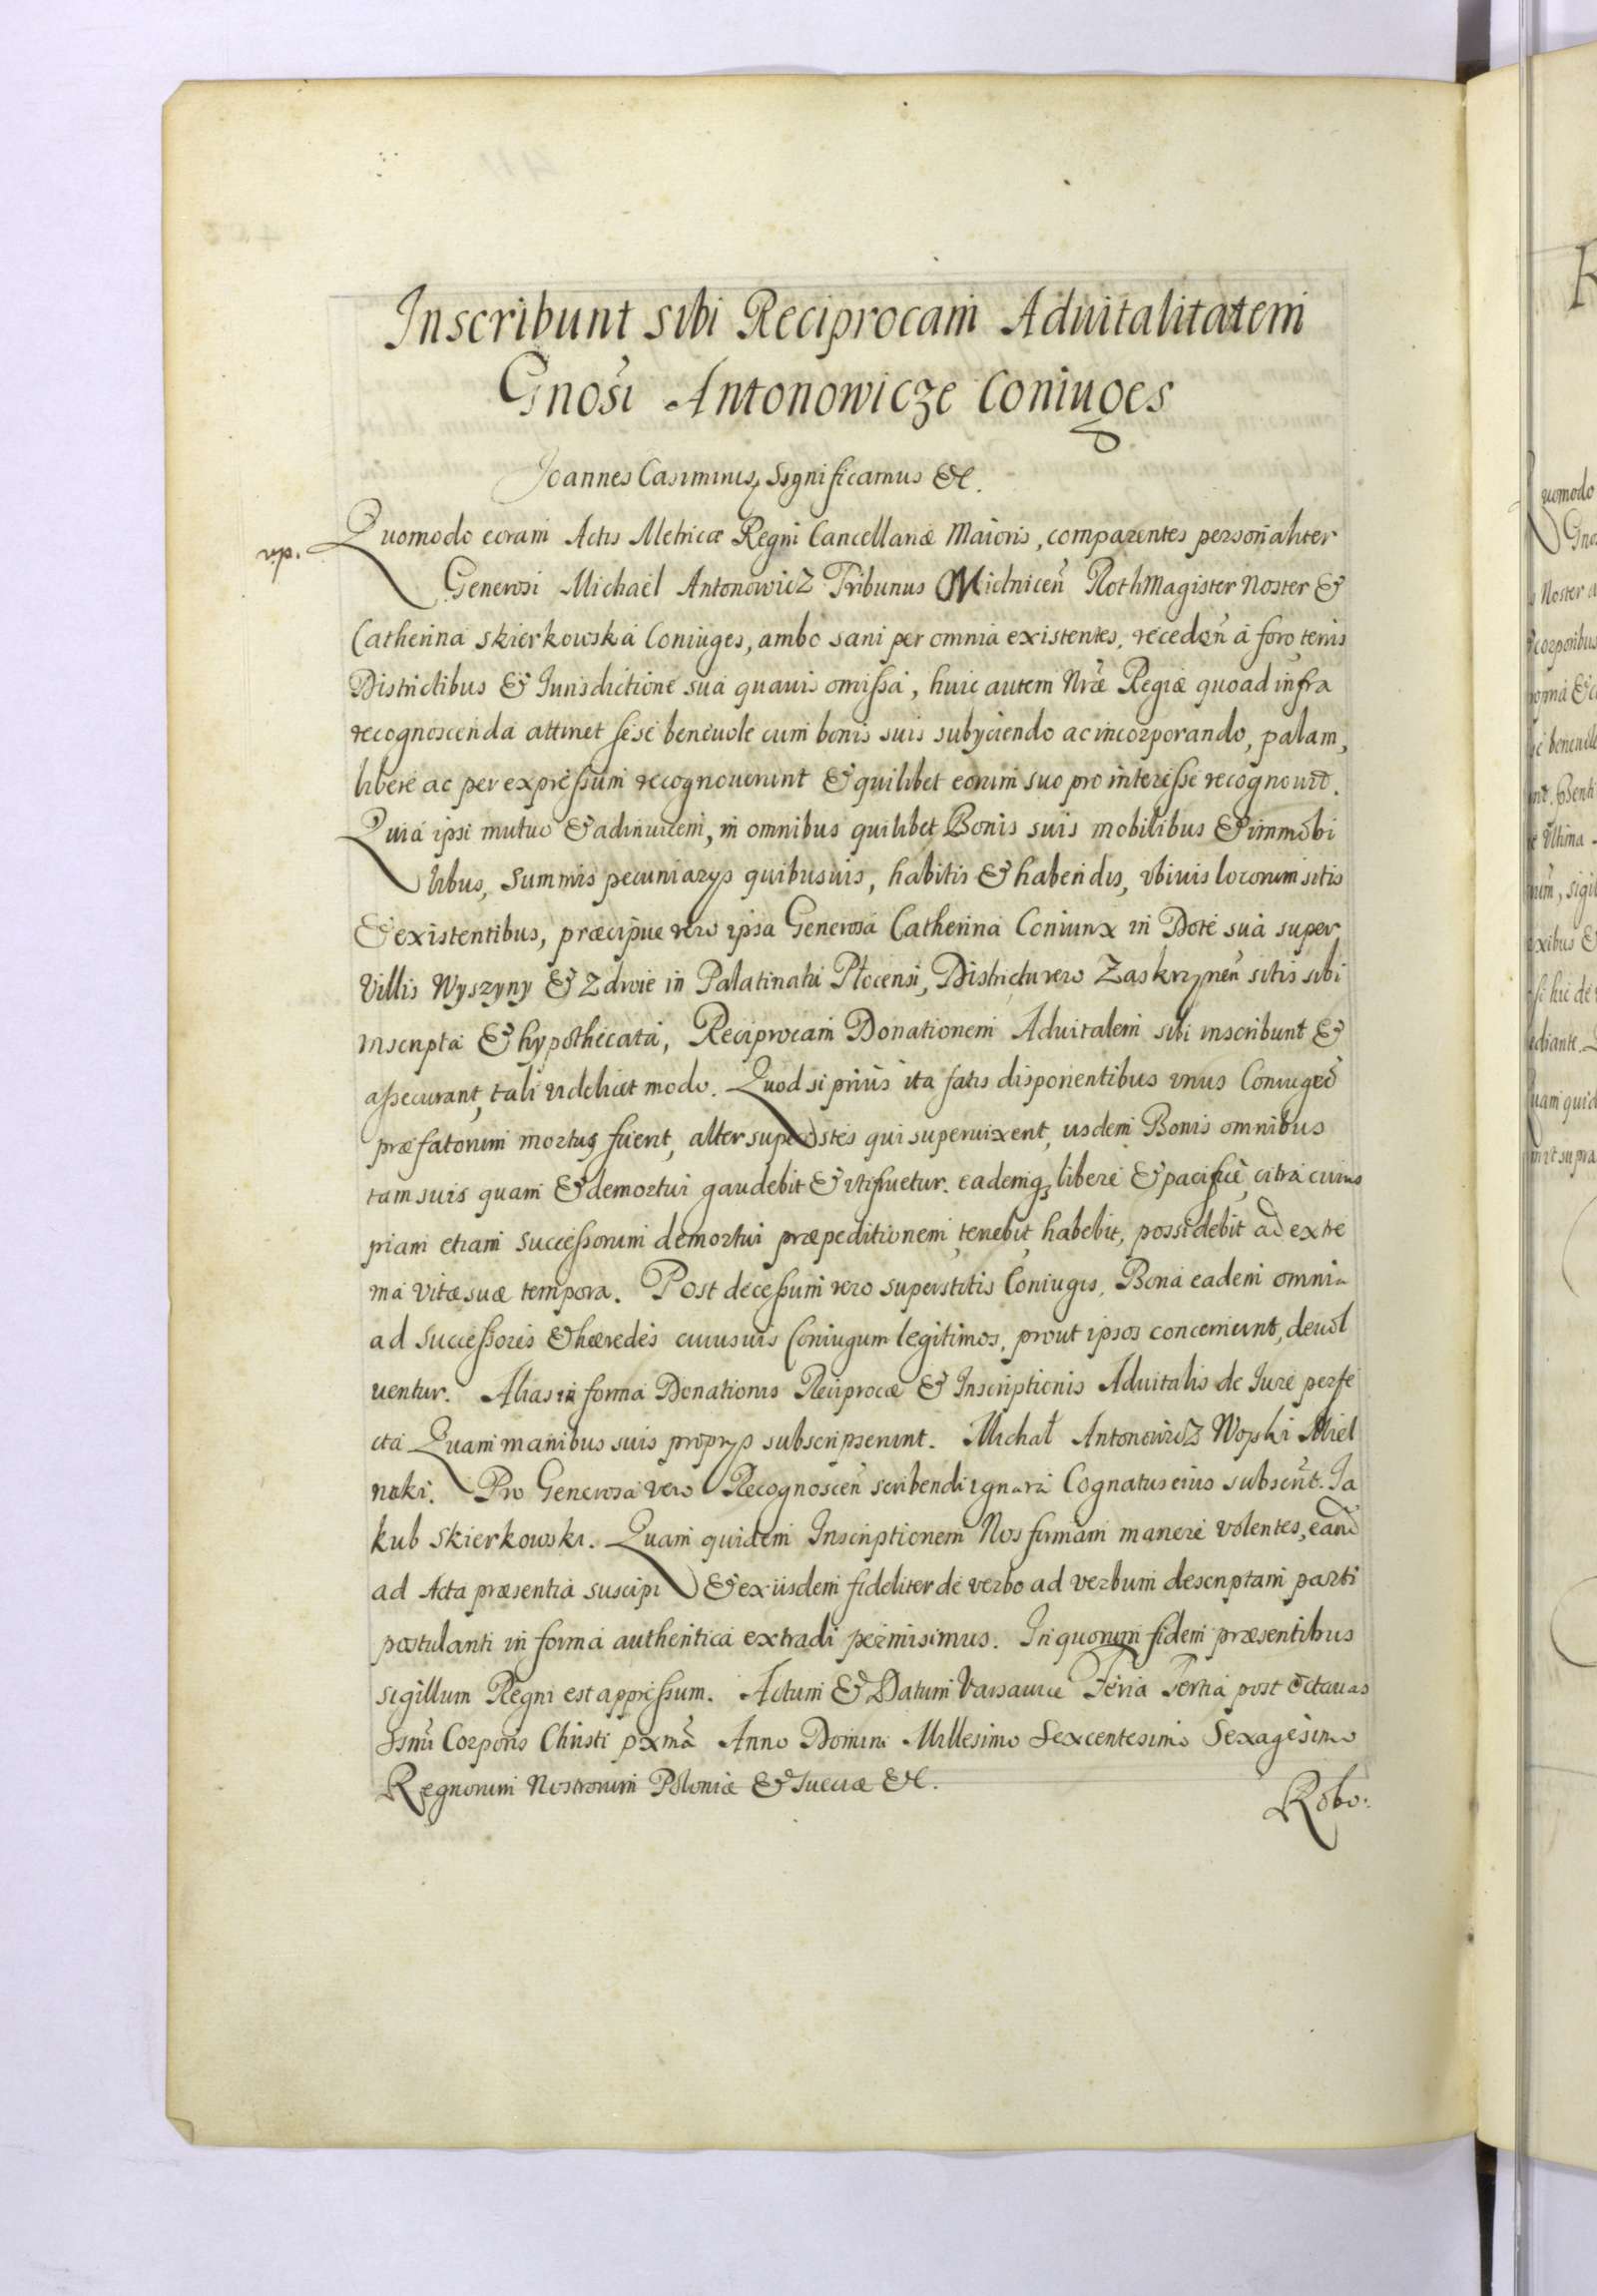 Inscribunt sibi Reciprocam Aduitalitatem
Gnosi Antonowicze Coniuges
Joannes Casimirus, Significamus &c.
Quomodo coram Actis Metricæ Regni Cancellariæ Maioris, comparentes personaliter
Generosi Michael Antonowicz Tribunus Mielnicen̄ Rothmagister Noster &
Catherina Skierkowska Coniuges, ambo sani per omnia existentes, receden̄ a foro, terris
Districtibus & Iurisdictione sua quauis omissa, huic autem Nr̄æ Regiæ quoad infra
recognoscenda attinet sese beneuole cum bonis suis subyciendo ac incorporando, palam,
libere ac per expressum recognouerunt & quilibet eorum suo pro interesse recognouit.
Quia ipsi mutuo & adinuicem, in omnibus quilibet Bonis suis mobilibus & immobi
libus, Summis pecuniarys quibusuis, habitis & habendis, vbiuis locorum sitis
& existentibus, præcipue vero ipsa Generosa Catherina Coniunx in Dote sua super
Villis Wyszyny & Zdwie in Palatinatu Płocensi, Districtu vero Zaskrzynen̄ sitis sibi
inscripta & hypothecata, Reciprocam Donationem Aduitalem sibi inscribunt &
assecurant, tali videlicet modo. Quod si prius ita fatis disponentibus vnus Coniugū
præfatorum mortuꝰ fuerit, alter superstes qui superuixerit, iisdem Bonis omnibus
tam suis quam & demortui gaudebit & vtifruetur. eademqꝫ libere & pacifice, citra cuius
piam etiam successorum demortui præpeditionem, tenebit, habebit, possidebit ad extre
ma vitæ suæ tempora. Post decessum vero superstitis Coniugis, Bona eadem omnia
ad successores & hæredes cuiusuis Coniugum legitimos, prout ipsos concernunt, deuol
uentur. Alias in forma Donationis Reciprocæ & Inscriptionis Aduitalis de Iure perfe
cta Quam manibus suis proprys subscripserunt. Michał Antonowicz Woyski Miel
nicki. Pro Generosa vero Recognoscen̄ scribendi ignara Cognatus eius subscr̄t. Ja
kub Skierkowski. Quam quidem Inscriptionem Nos firmam manere volentes, eand
ad Acta præsentia suscipi & ex iisdem fideliter de verbo ad verbum descriptam parti
postulanti in forma authentica extradi permisimus. In quorum fidem præsentibus
sigillum Regni est appressum. Actum & Datum Varsauiæ Feria Tertia post Octauas
Ssmi Corporis Christi pxmā Anno Domini Millesimo Sexcentesimo Sexagesimo
Regnorum Nostrorum Poloniæ & Sueciæ &c.
Robo: